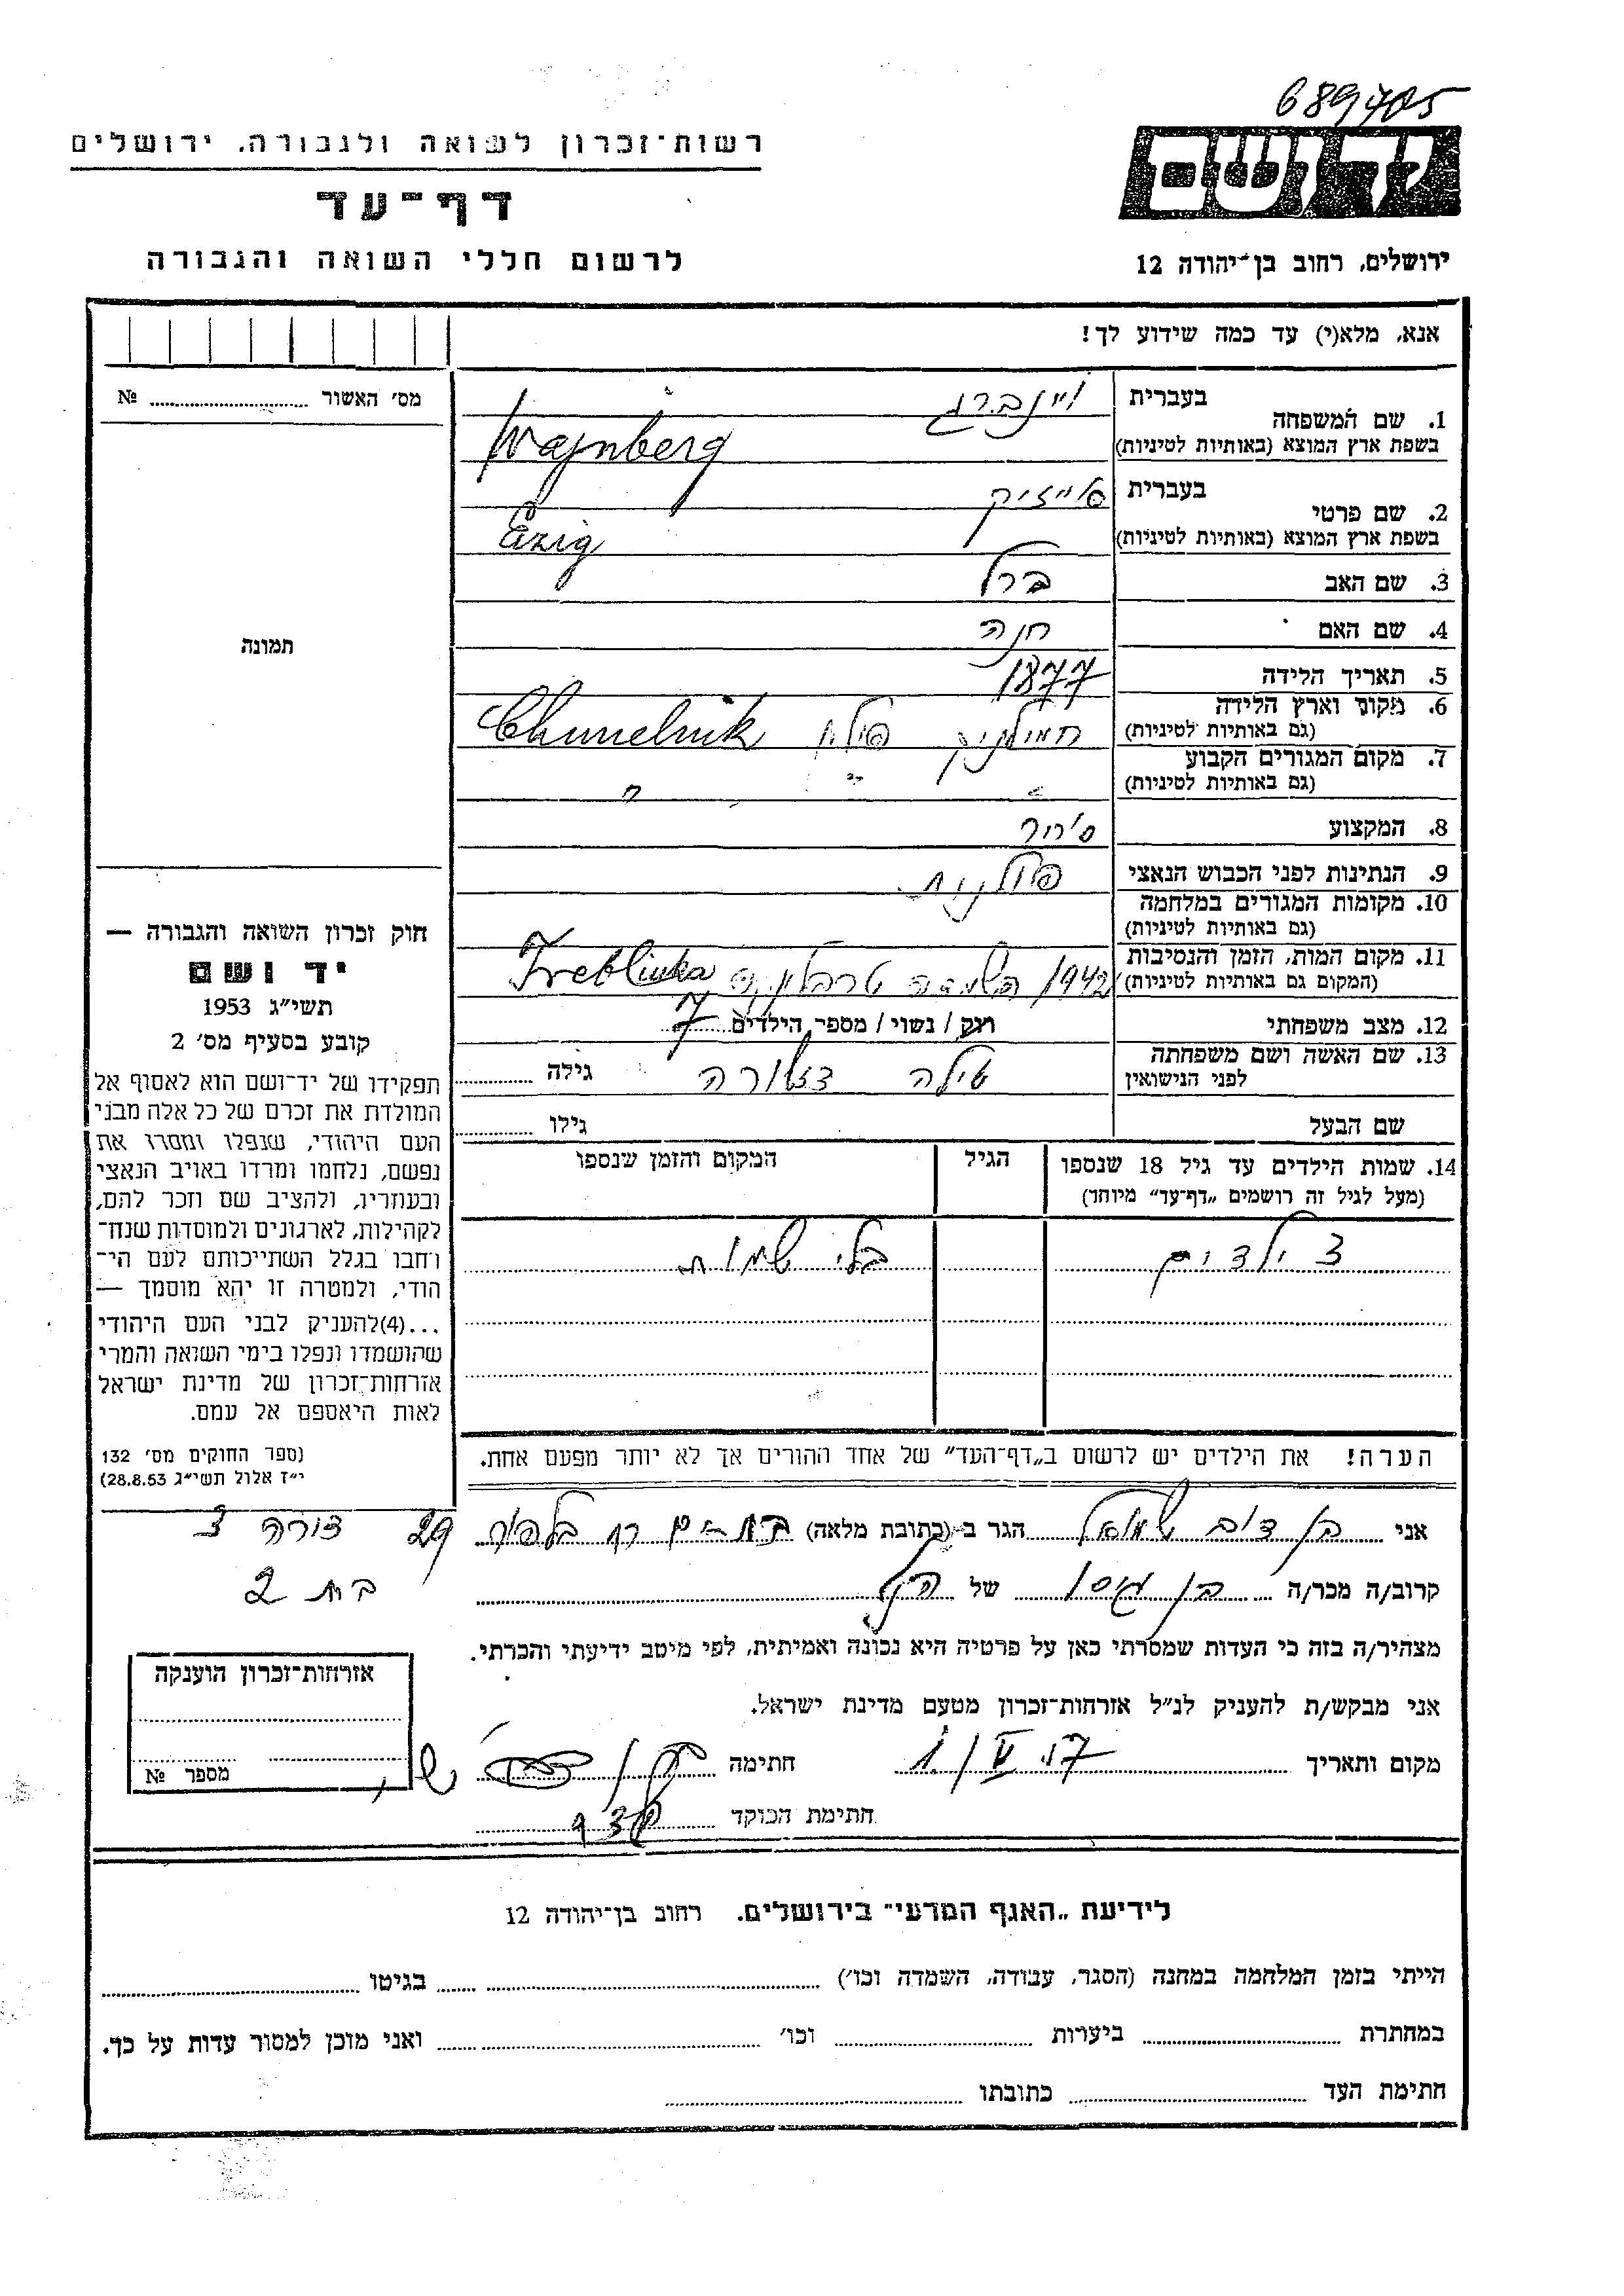 689705
ידושם
רשות־זכרון לשואה ולגבורה, ירושלים
דף־עד
לרשום חללי השואה והגבורה
ירושלים, רחוב בן־יהודה 12
אנא, מלא(י) עד כמה שידוע לך!
מס׳ האשור ........ №
תמונה
1. שם המשפחה
בעברית ויינברג
בשפת ארץ המוצא (באותיות לטיניות) Wajnberg
2. שם פרטי
בעברית אייזיק
בשפת ארץ המוצא (באותיות לטיניות) Ezig
3. שם האב ברל
4. שם האם חנה
5. תאריך הלידה 1877
6. מקום וארץ הלידה
(גם באותיות לטיניות) חמילניק פולין Chmielnik
7. מקום המגורים הקבוע
(גם באותיות לטיניות) " " "
8. המקצוע
9. הנתינות לפני הכבוש הנאצי פולנית
10. מקומות המגורים במלחמה
(גם באותיות לטיניות)
11. מקום המות, הזמן והנסיבות
(המקום גם באותיות לטיניות) 1942 השמדה טרבלינקה Treblinka
12. מצב משפחתי רוק / נשוי / מספר הילדים 7
13. שם האשה ושם משפחתה
לפני הנישואין גילה
שם הבעל גילו
14. שמות הילדים עד גיל 18 שנספו
(מעל לגיל זה רושמים „דף־עד״ מיוחד)
הגיל
המקום והזמן שנספו
3 ילדים בלי שמות
הערה! את הילדים יש לרשום ב„דף־העד״ של אחד ההורים אך לא יותר מפעם אחת.
חוק זכרון השואה והגבורה —
יד ושם
תשי״ג 1953
קובע בסעיף מס׳ 2
תפקידו של יד־ושם הוא לאסוף אל
המולדת את זכרם של כל אלה מבני
העם היהודי, שנפלו ומסרו את
נפשם, נלחמו ומרדו באויב הנאצי
ובעוזריו, ולהציב שם וזכר להם,
לקהילות, לארגונים ולמוסדות שנח־
רחבו בגלל השתייכותם לעם הי־
הודי, ולמטרה זו יהא מוסמך —
...(4)להעניק לבני העם היהודי
שהושמדו ונפלו בימי השואה והמרי
אזרחות־זכרון של מדינת ישראל
לאות היאספם אל עמם.
(ספר החוקים מס׳ 132
י״ז אלול תשי״ג 28.8.53)
אני בן דוב שמואל הגר ב־(כתובת מלאה) בת־ים רח בלפור 29
קרוב/ה מכר/ה בן גיסו של הנ״ל
מצהיר/ה בזה כי העדות שמסרתי כאן על פרטיה היא נכונה ואמיתית, לפי מיטב ידיעתי והכרתי.
אני מבקש/ת להעניק לנ״ל אזרחות־זכרון מטעם מדינת ישראל.
מקום ותאריך חתימה
חתימת הפוקד
אזרחות־זכרון הוענקה
מספר №
לידיעת „האגף המדעי״ בירושלים, רחוב בן־יהודה 12
הייתי בזמן המלחמה במחנה (הסגר, עבודה, השמדה וכו׳) ........ בגיטו ........
במחתרת ........ ביערות ........ וכו׳ ........ ואני מוכן למסור עדות על כך.
חתימת העד ........ כתובתו ........